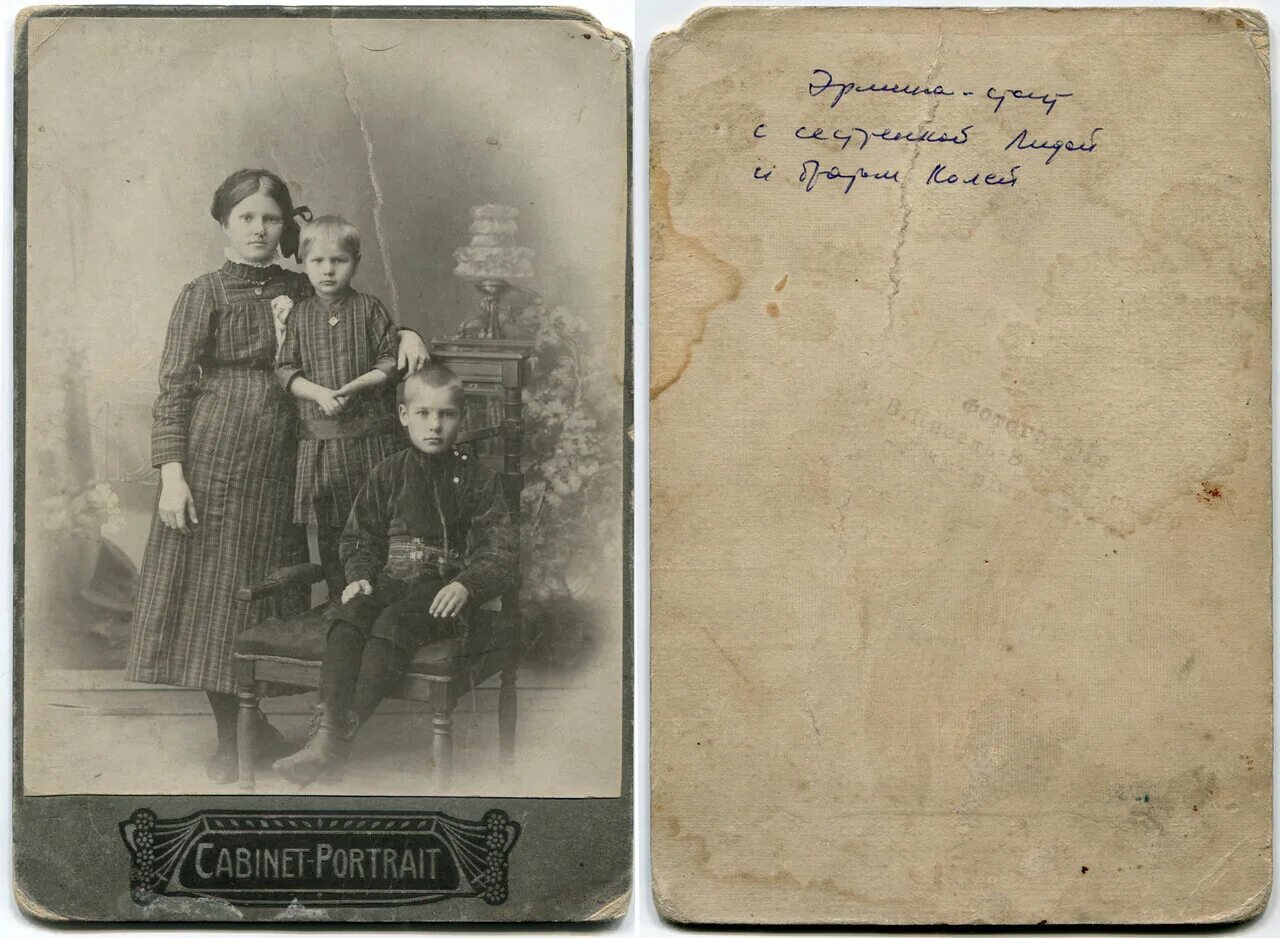 CABINET-PORTRAIT
Эрмина - стоит
с сестренкой Лидой
и братом Колей
Фотография